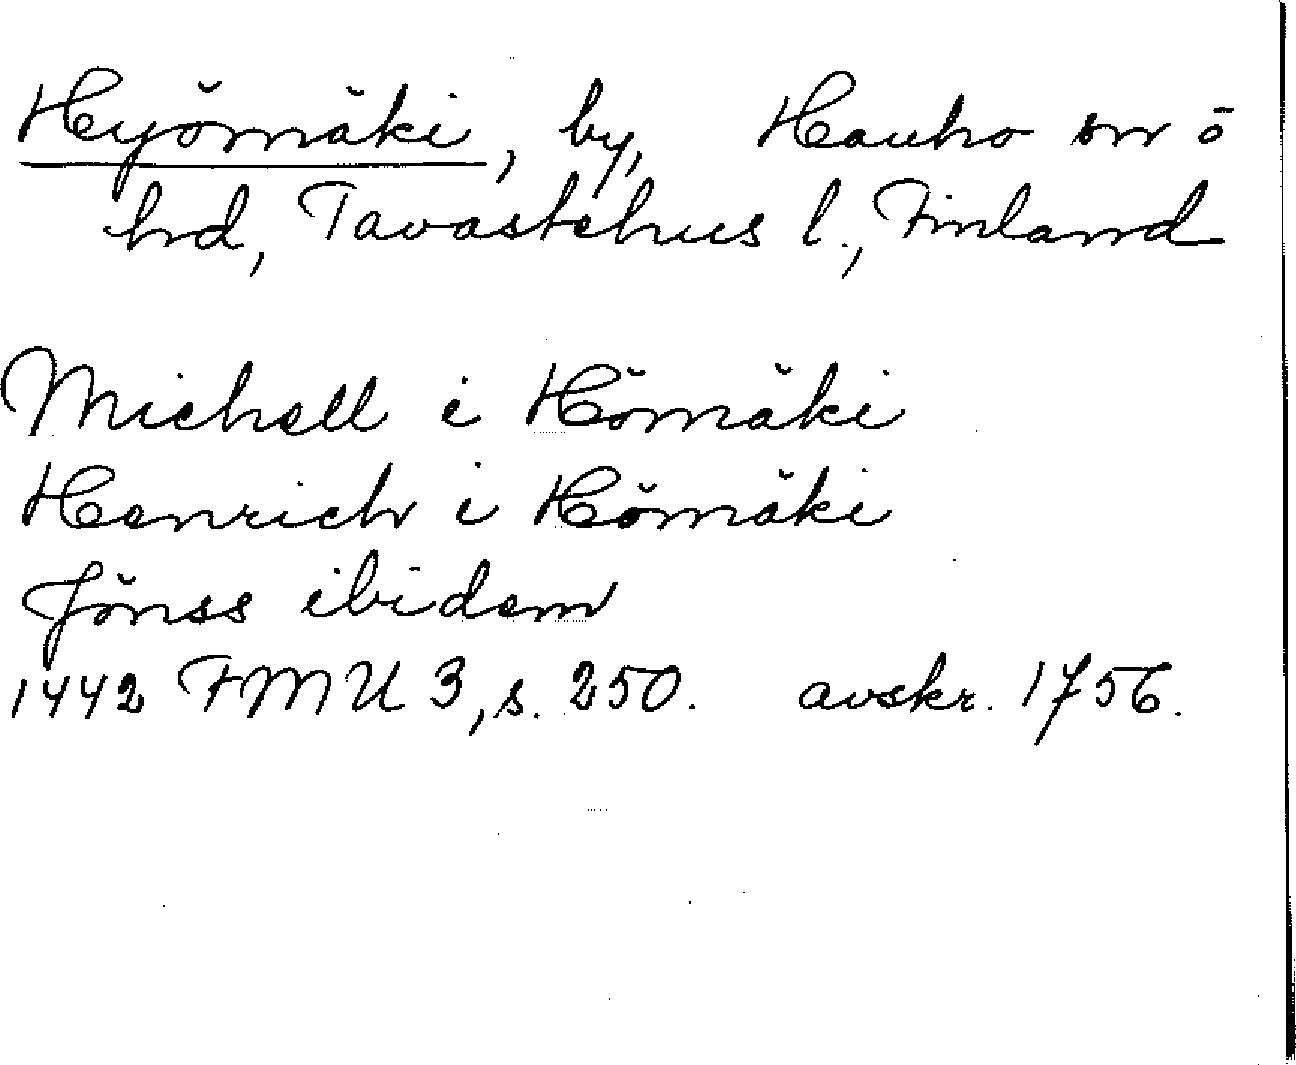 Hyömäki, by, Hauho sn o ö
hd, Tavastehus l., Finland
Michell i Hömäki
Henrich i Hömäki
Jönss ibidem
1442 FMU 3, s. 250. avskr. 1756.